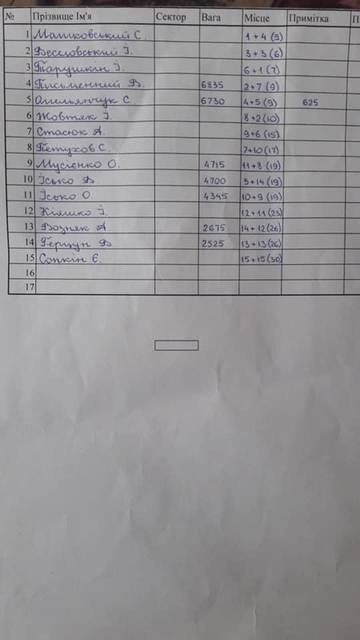 № Прізвище Ім'я Сектор Вага Місце Примітка П
1 Матковський С. 1+4 (5)
2 Весловський І. 3+3 (6)
3 Тарушкін І. 6+1 (7)
4 Письменний В. 6835 2+7 (9)
5 Омельянчук С 6730 4+5 (9) 625
6 Жовтяк І. 8+2 (10)
7 Стасюк А. 9+6 (15)
8 Петухов С. 7+10 (17)
9 Мусієнко О. 4715 11+8 (19)
10 Ісько В. 4700 5+14 (19)
11 Ісько О. 4345 10+9 (19)
12 Кіяшко І. 12+11 (23)
13 Возняк А 2675 14+12 (26)
14 Герцун В 2525 13+13 (26)
15 Сопкін Є. 15+15 (30)
16
17